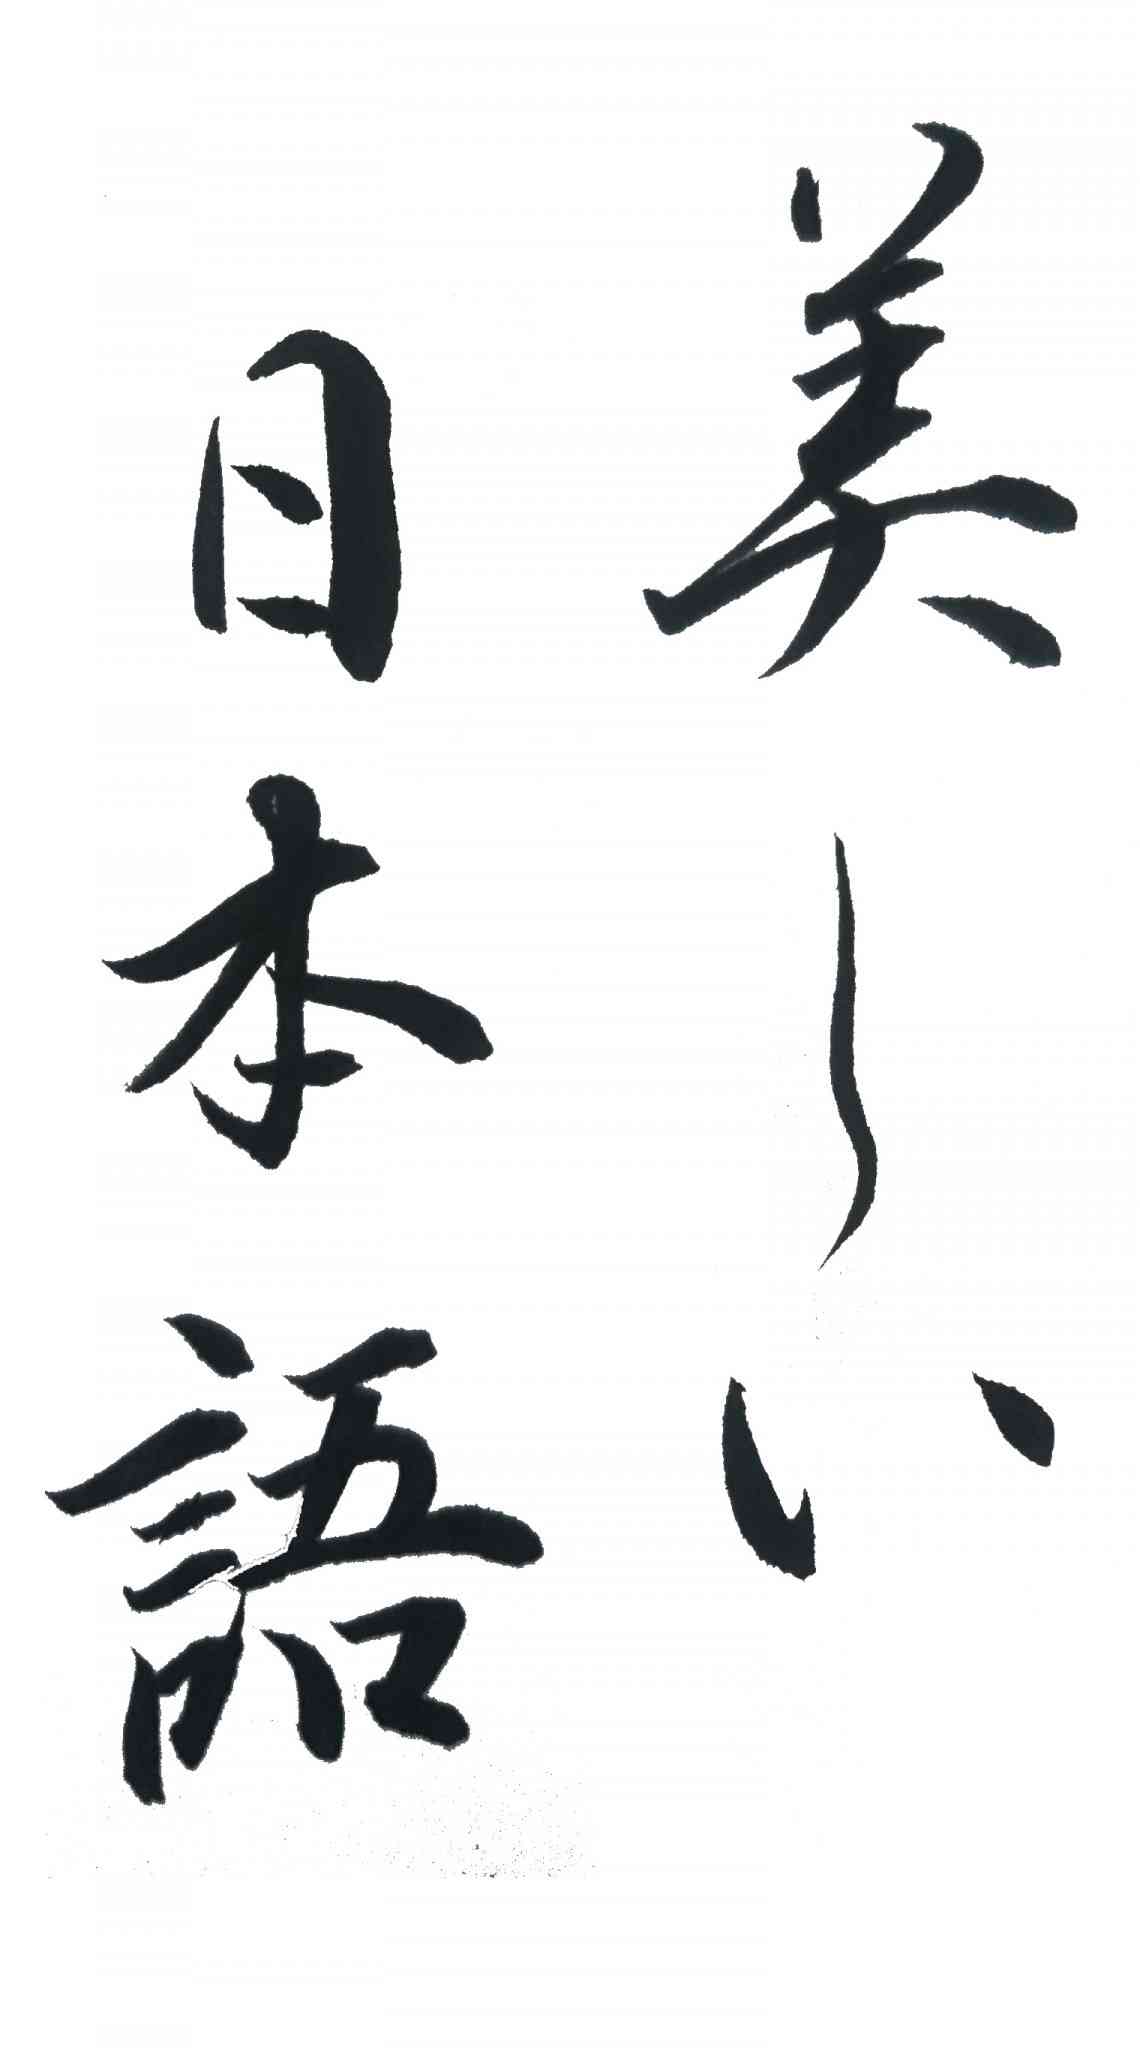 美しい
日本語